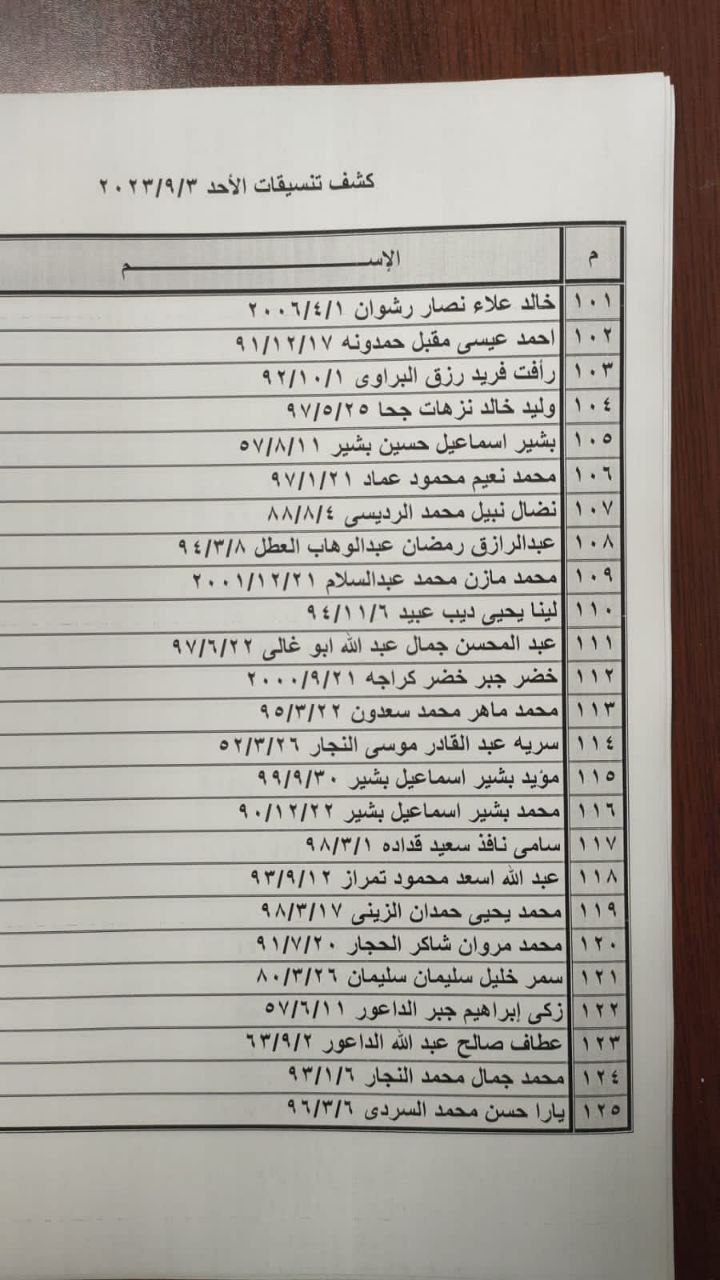 كشف تنسيقات الأحد ٢٠٢٣/٩/٣
م الإســـــــــــــــــــــــــــــــم
١٠١ خالد علاء نصار رشوان ٢٠٠٦/٤/١
١٠٢ احمد عيسى مقبل حمدونه ٩١/١٢/١٧
١٠٣ رأفت فريد رزق البراوى ٩٢/١٠/١
١٠٤ وليد خالد نزهات جحا ٩٧/٥/٢٥
١٠٥ بشير اسماعيل حسين بشير ٥٧/٨/١١
١٠٦ محمد نعيم محمود عماد ٩٧/١/٢١
١٠٧ نضال نبيل محمد الرديسى ٨٨/٨/٤
١٠٨ عبدالرازق رمضان عبدالوهاب العطل ٩٤/٣/٨
١٠٩ محمد مازن محمد عبدالسلام ٢٠٠١/١٢/٢١
١١٠ لينا يحيى ديب عبيد ٩٤/١١/٦
١١١ عبد المحسن جمال عبد الله ابو غالى ٩٧/٦/٢٢
١١٢ خضر جبر خضر كراجه ٢٠٠٠/٩/٢١
١١٣ محمد ماهر محمد سعدون ٩٥/٣/٢٢
١١٤ سريه عبد القادر موسى النجار ٥٢/٣/٢٦
١١٥ مؤيد بشير اسماعيل بشير ٩٩/٩/٣٠
١١٦ محمد بشير اسماعيل بشير ٩٠/١٢/٢٢
١١٧ سامى نافذ سعيد قداده ٩٨/٣/١
١١٨ عبد الله اسعد محمود تمراز ٩٣/٩/١٢
١١٩ محمد يحيى حمدان الزينى ٩٨/٣/١٧
١٢٠ محمد مروان شاكر الحجار ٩١/٧/٢٠
١٢١ سمر خليل سليمان سليمان ٨٠/٣/٢٦
١٢٢ زكى إبراهيم جبر الداعور ٥٧/٦/١١
١٢٣ عطاف صالح عبد الله الداعور ٦٣/٩/٢
١٢٤ محمد جمال محمد النجار ٩٣/١/٦
١٢٥ يارا حسن محمد السردى ٩٦/٣/٦